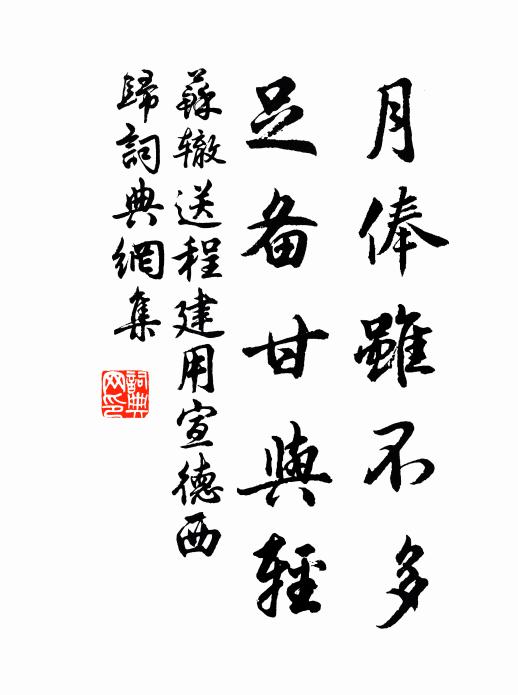 月俸雖不多
足备甘與輕
蘇辙送程建用宣德西
歸詞典網集
詞典
网印